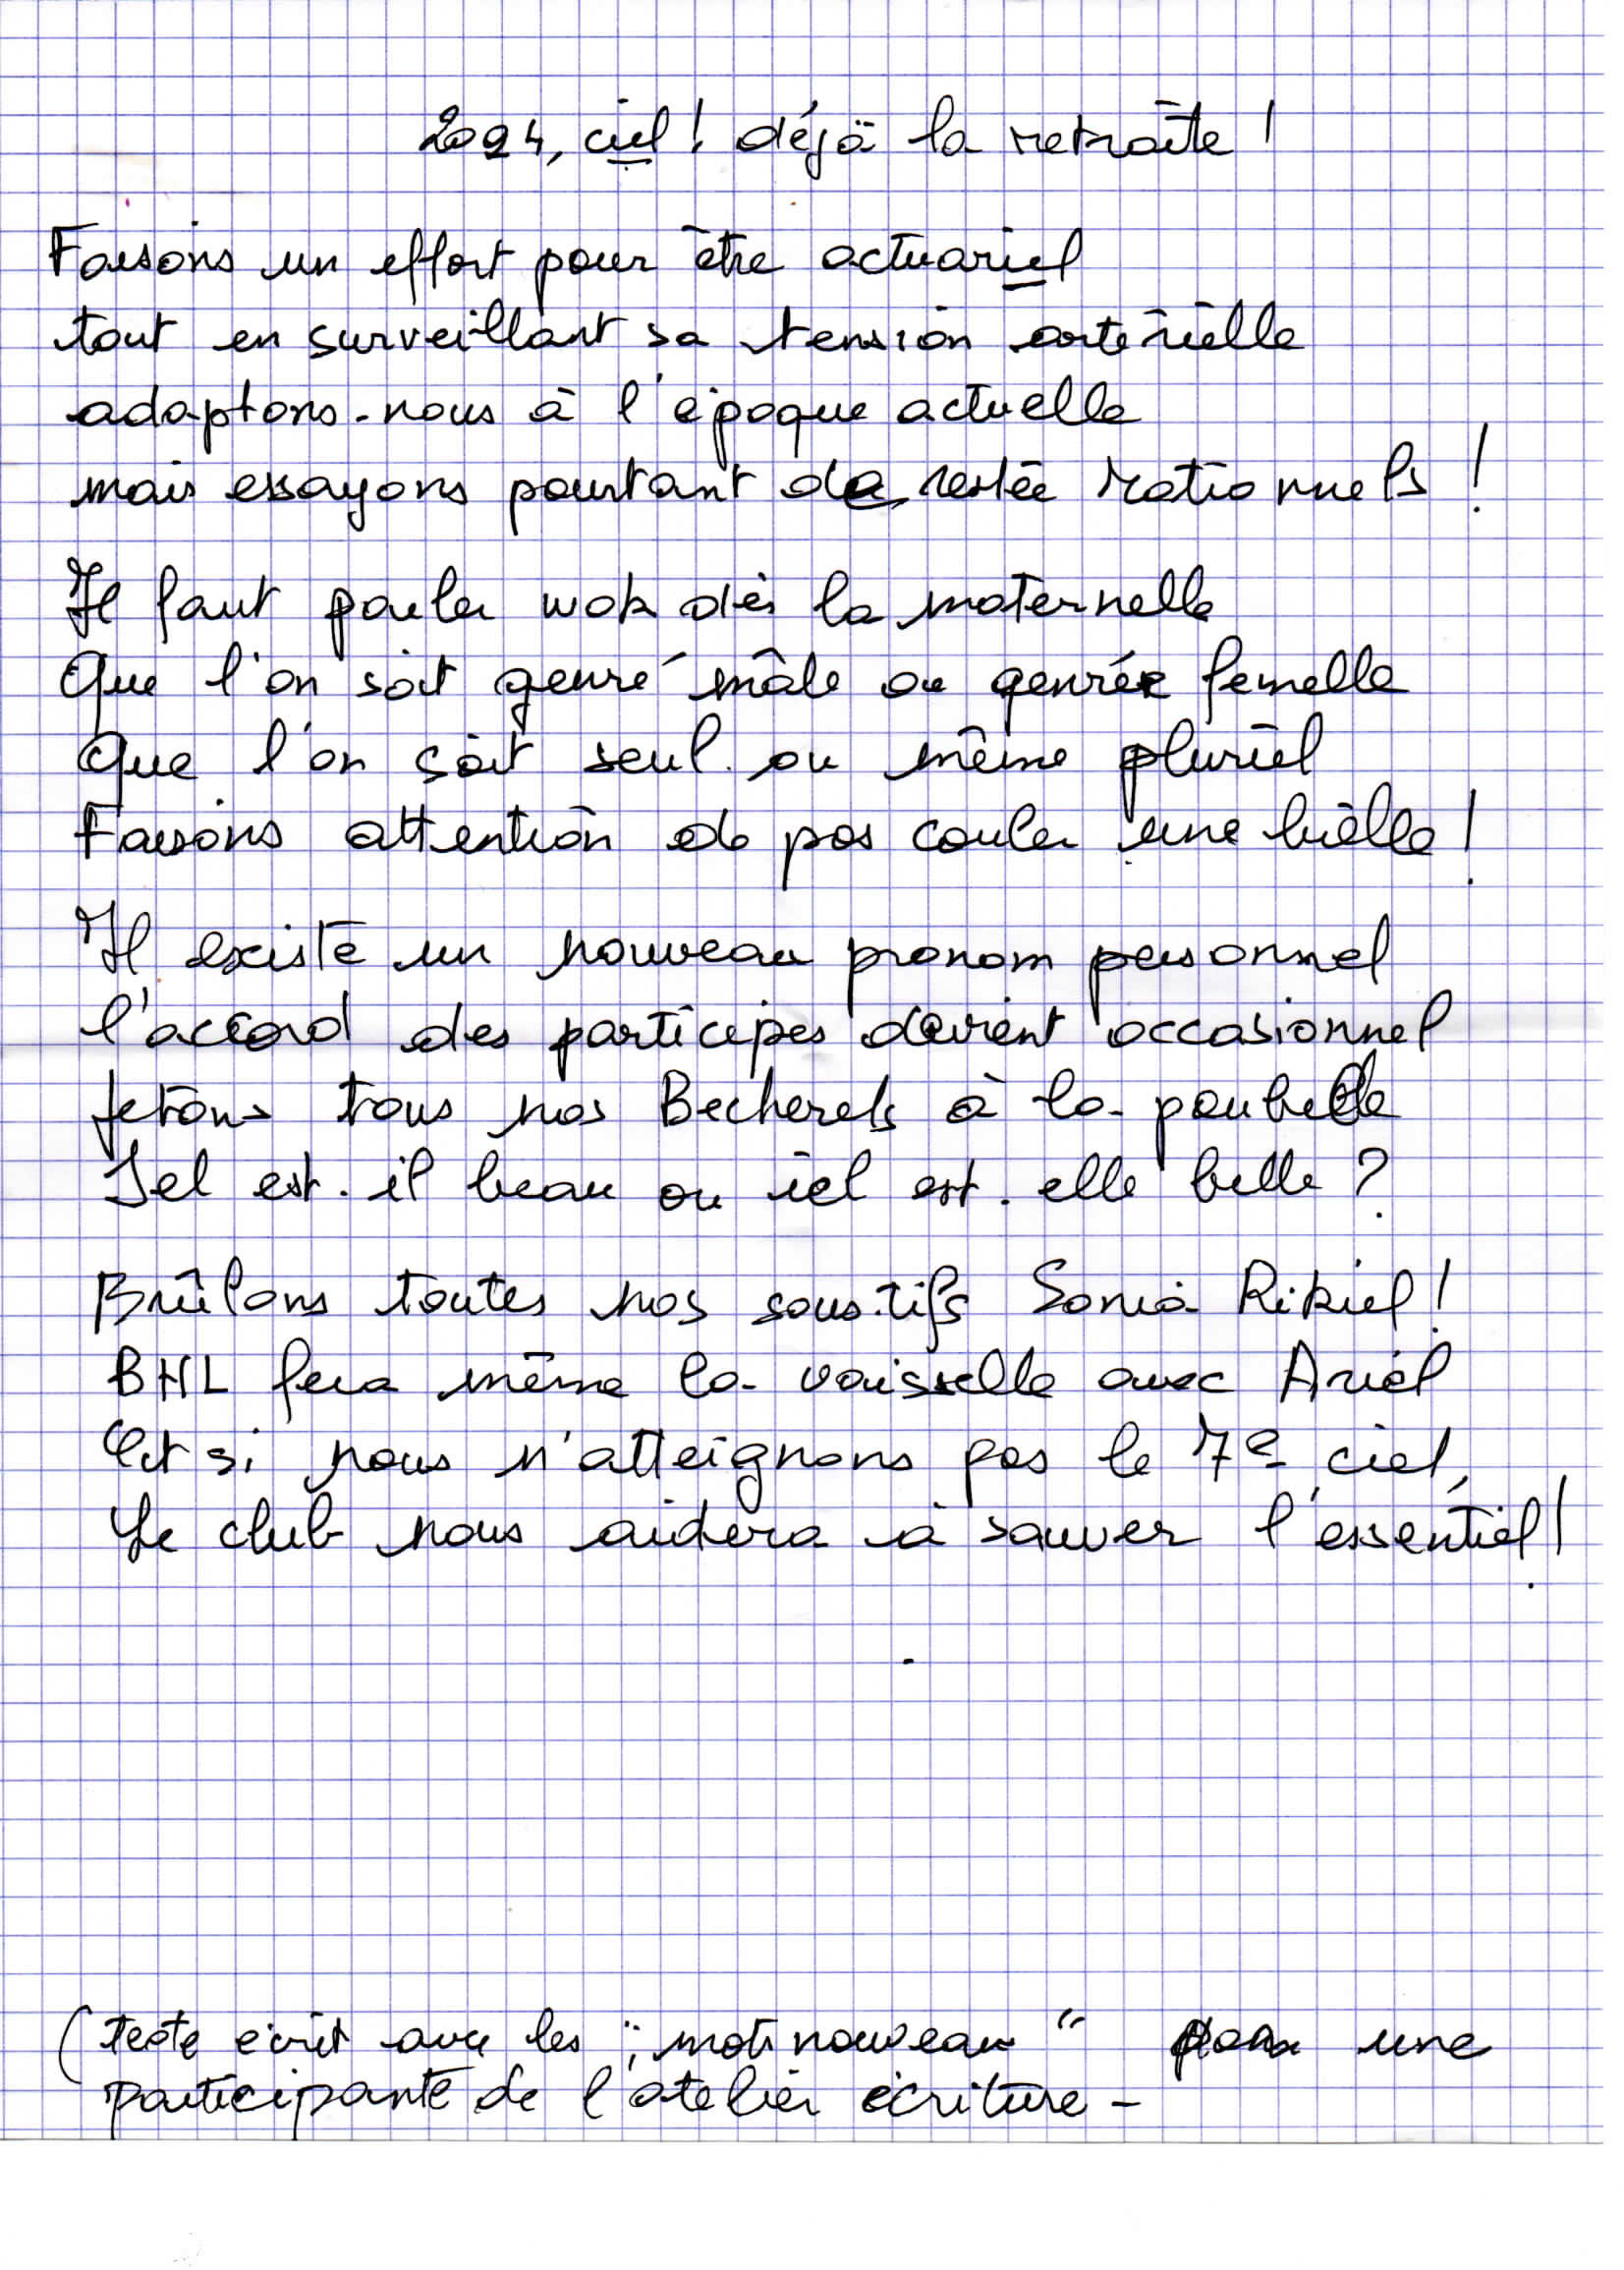 2024, ciel ! déjà la retraite !
Faisons un effort pour être actuariel
tout en surveillant sa tension artérielle
adaptons-nous à l'époque actuelle
mais essayons pourtant de restée rationnels !
Il faut parler wok dès la maternelle
Que l'on soit genré mâle ou genrée femelle
Que l'on soit seul ou même pluriel
Faisons attention de pas couler une bielle !
Il existe un nouveau pronom personnel
l'accord des participes devient occasionnel
Jetons tous nos Becherels à la poubelle
Iel est-il beau ou iel est-elle belle ?
Brûlons toutes nos sous-tifs Sonia Rikiel !
BHL fera même la vaisselle avec Ariel
Et si nous n'atteignons pas le 7e ciel,
Le club nous aidera à sauver l'essentiel !
(texte écrit avec les "mots nouveau" par une
participante de l'atelier écriture -